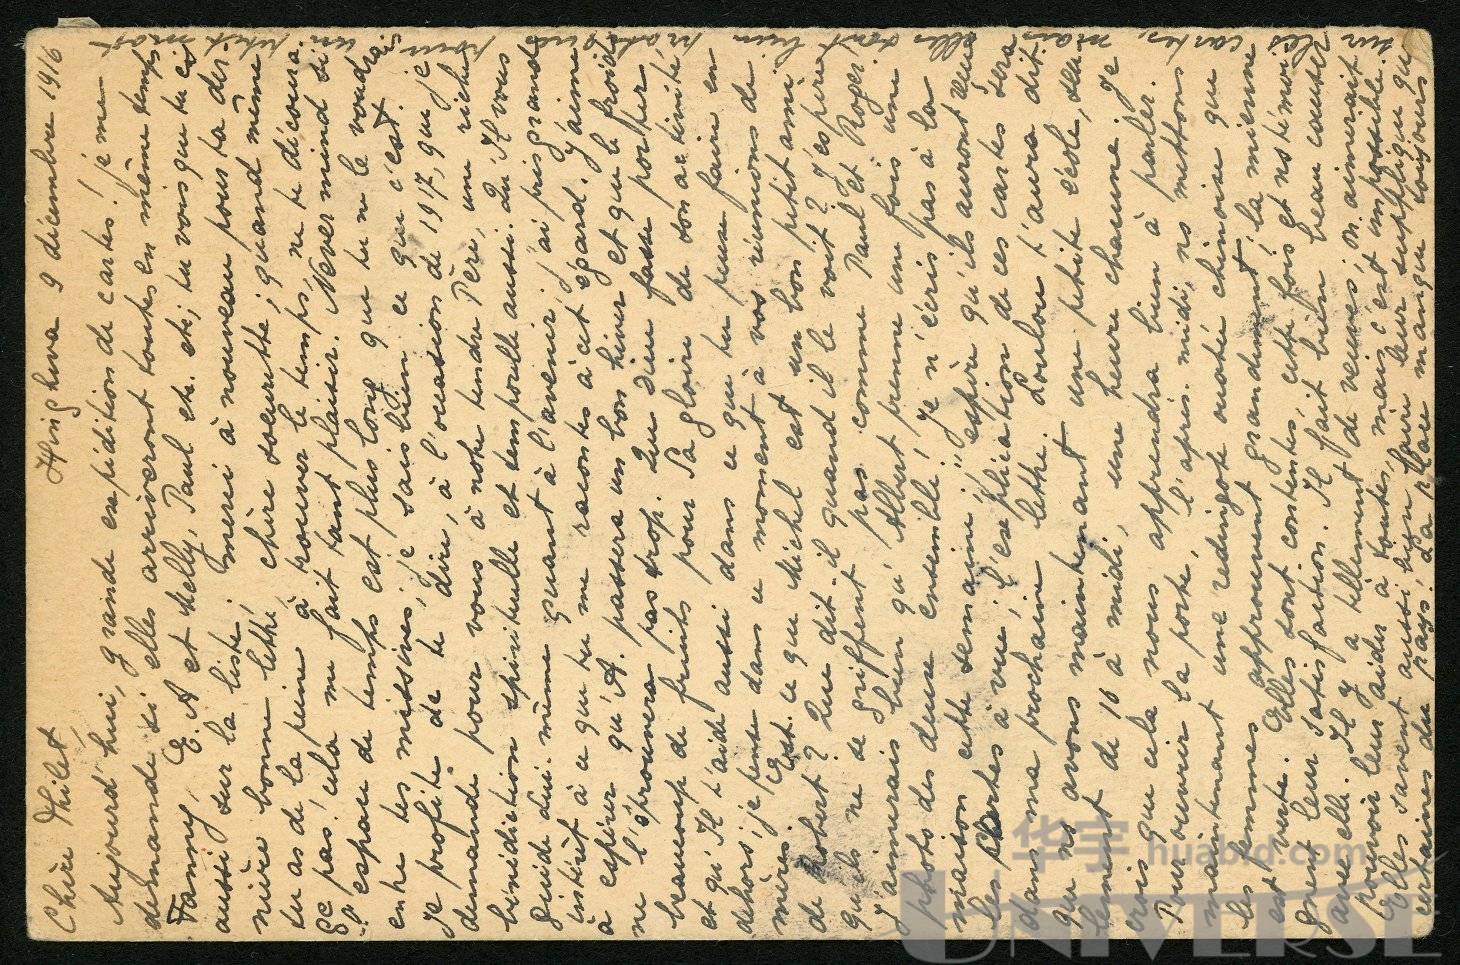 Hinghwa 9 décembre 1916
Chère Philet,
Aujourd'hui, grande expédition de cartes! je me
demande si elles arriveront toutes en même temps
Fanny, E. A et Melly, Paul etc. etc; tu vois que tu es
aussi sur la liste! merci à nouveau pour ta der
nière bonne lettre, chère soeurette, quand même
tu as de la peine à trouver le temps, ne te découra
ge pas, cela me fait tant plaisir. Never mind si
l'espace de temps est plus long que tu ne le voudrais
entre tes missives, je sais bien ce que c'est.
Je profite de te dire, à l'occasion de 1917, que je
demande pour vous à notre tendre Père, un riche
bénédiction spirituelle et temporelle aussi. Qu'Il vous
guide Lui-même quant à l'avenir, j'ai pris grand
intérêt à ce que tu me racontes à cet égard. J'aime
à espérer qu'A. passera un bon hiver et que le froid
ne l'éprouvera pas trop. Que Dieu fasse porter
beaucoup de fruits pour Sa gloire de son activité
et qu'Il t'aide aussi dans ce que tu peux faire en
dehors; je pense dans ce moment à vos réunions de
mères. Est-ce que Michel est un bon petit ami
de Robert? Que dit-il quand il le voit? J'espère
qu'ils ne se griffent pas comme Paul et Roger.
J'aimerais bien qu'Albert prenne une fois une
photo des deux ensemble! Je n'écris pas à la
maison cette semaine; j'espère qu'ils auront reçu
les cartes à vue; l'explication de ces cartes sera
dans ma prochaine lettre. Loulou t'aura dit
que ns avons maintenant une petite école, seu
lement de 10 à midi, une heure chacune. Je
crois que cela nous apprendra bien à parler.
Pour ouvrir la porte, l'après-midi, ns mettons
maintenant une redingote ouatée chinoise que
les femmes approuvent grandement, la mienne
est verte. Elles sont contentes, cette fois et ns témoi
gnent leur satisfaction. Il fait bien beau causer
avec elle. Il y a tellement de veuves, on aimerait
pouvoir leur aider à toutes, mais c'est impossible.
Elles savent aussi bien faire leur supplique que
certaines du pays. La place manque toujours
sur les cartes, mais elles sont bien pratiques pour un petit mot